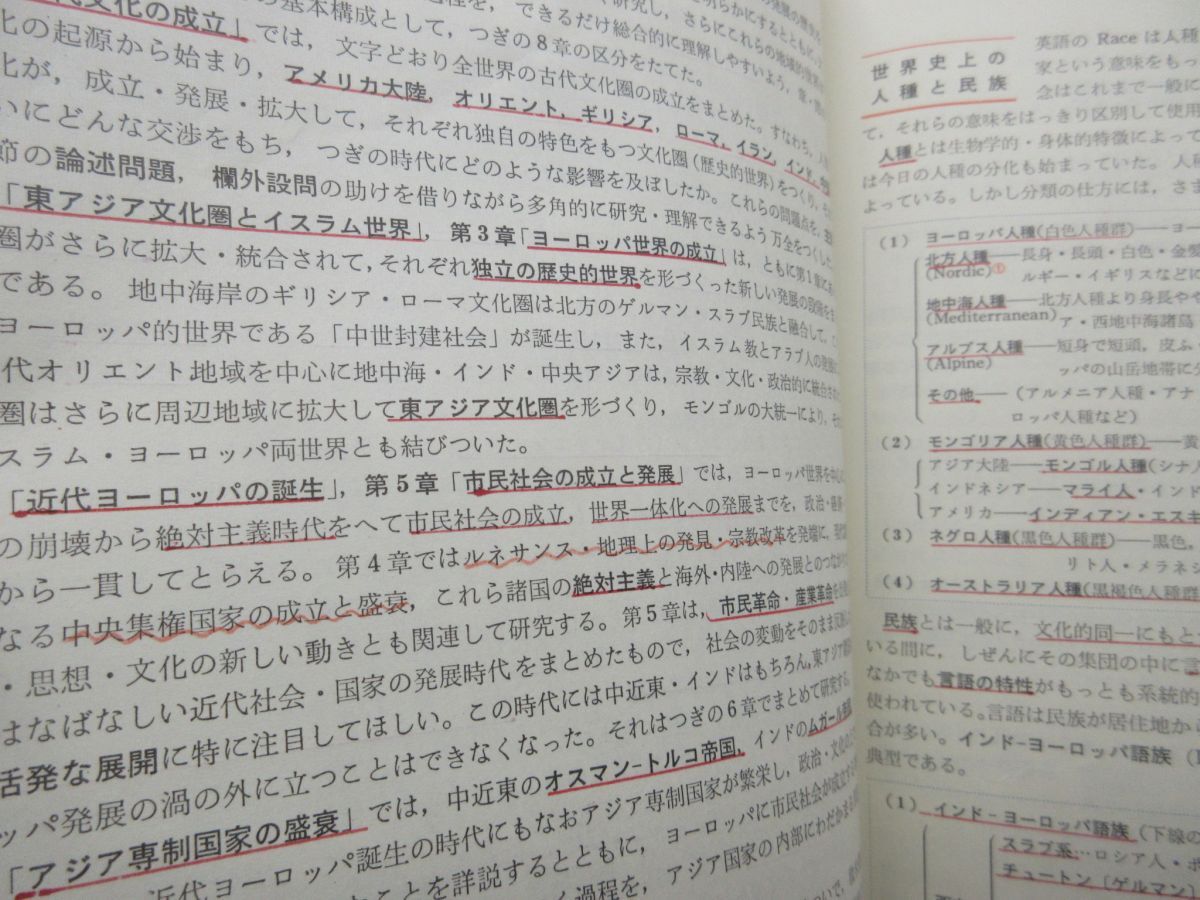 代文化の成立」では，文字どおり全世界の古代文化圏の成立をまとめた。すなわち，人
化の起源から始まり，アメリカ大陸，オリエント，ギリシア，ローマ，イラン，インド，
化が，成立・発展・拡大して，それぞれ独自の特色をもつ文化圏(歴史的世界)をつくり，
いにどんな交渉をもち，つぎの時代にどのような影響を及ぼしたか。これらの問題点を，
節の論述問題，欄外設問の助けを借りながら多角的に研究・理解できるよう万全をつくした
「東アジア文化圏とイスラム世界」，第3章「ヨーロッパ世界の成立」は，ともに第1章
圏がさらに拡大・統合されて，それぞれ独立の歴史的世界を形づくった新しい発展の段階
である。地中海岸のギリシア・ローマ文化圏は北方のゲルマン・スラブ民族と融合して，
ヨーロッパ的世界である「中世封建社会」が誕生し，また，イスラム教とアラブ人の
代オリエント地域を中心に地中海・インド・中央アジアは，宗教・文化・政治的に統合
圏はさらに周辺地域に拡大して東アジア文化圏を形づくり，モンゴルの大統一により，
スラム・ヨーロッパ両世界とも結びついた。
「近代ヨーロッパの誕生」，第5章「市民社会の成立と発展」では，ヨーロッパ世界を中心
の崩壊から絶対主義時代をへて市民社会の成立，世界一体化への発展までを，政治・経済
から一貫してとらえる。第4章ではルネサンス・地理上の発見・宗教改革を発端に，
なる中央集権国家の成立と盛衰，これら諸国の絶対主義と海外・内陸への発展とのつながり
・思想・文化の新しい動きとも関連して研究する。第5章は，市民革命・産業革命
はなばなしい近代社会・国家の発展時代をまとめたもので，社会の変動をそのまま反映
活発な展開に特に注目してほしい。この時代には中近東・インドはもちろん，東アジア
ッパ発展の渦の外に立つことはできなくなった。それはつぎの6章でまとめて研究する。
「アジア専制国家の盛衰」では，中近東のオスマン-トルコ帝国，インドのムガール帝国
近代ヨーロッパ誕生の時代にもなおアジア専制国家が繁栄し，政治・文化の
ことを詳説するとともに，ヨーロッパに市民社会が成立する
過程を，アジア国家の内部にわだかまる
世界史上の
人種と民族
英語の Race は人種
家という意味をもっ
念はこれまで一般に
て，それらの意味をはっきり区別して使用
人種とは生物学的・身体的特徴によって
は今日の人種の分化も始まっていた。人
よっている。しかし分類の仕方には，さま
(1) ヨーロッパ人種(白色人種群)――ヨー
北方人種――長身・長頭・白色・金髪
(Nordic)① ルギー・イギリスなどに
地中海人種――北方人種より身長や
(Mediterranean) ア・西地中海諸島
アルプス人種――短身で短頭，皮ふ・
(Alpine) ッパの山岳地帯に分
その他――(アルメニア人種・アナ
ロッパ人種など)
(2) モンゴリア人種(黄色人種群)――黄
アジア大陸――モンゴル人種(シナ
インドネシア――マライ人・インド
アメリカ――インディアン・エスキ
(3) ネグロ人種(黒色人種群)――黒色，
リト人・メラネシ
(4) オーストラリア人種(黒褐色人種群
民族とは一般に，文化的同一にもと
いる間に，しぜんにその集団の中に言
なかでも言語の特性がもっとも系統的
使われている。言語は民族が居住地か
合が多い。インド-ヨーロッパ語族(
典型である。
(1) インド-ヨーロッパ語族(下線の
スラブ系…ロシア人・ポ
チュートン〔ゲルマン〕